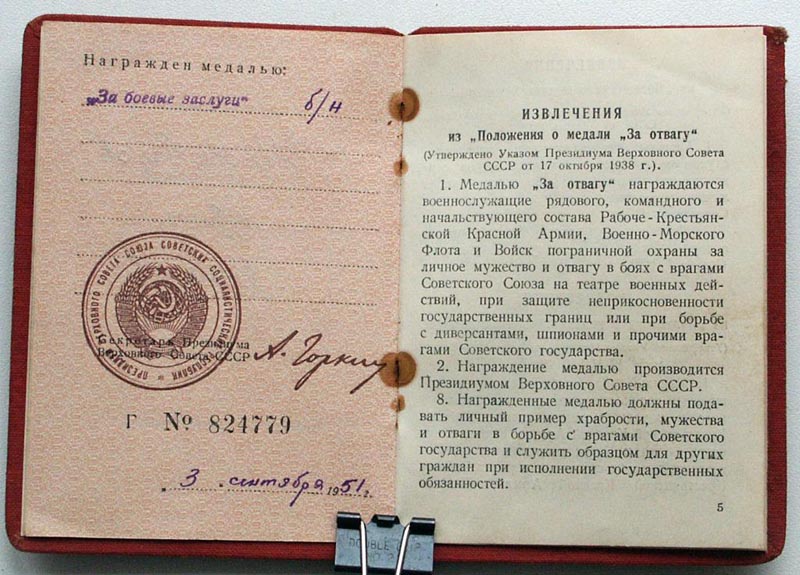 Награжден медалью:
„За боевые заслуги“ б/н
ПРЕЗИДИУМ ВЕРХОВНОГО СОВЕТА СОЮЗА СОВЕТСКИХ СОЦИАЛИСТИЧЕСКИХ РЕСПУБЛИК
Секретарь Президиума
Верховного Совета СССР А. Горкин
Г № 824779
3 сентября 1951 г.
ИЗВЛЕЧЕНИЯ
из „Положения о медали „За отвагу“
(Утверждено Указом Президиума Верховного Совета
СССР от 17 октября 1938 г.).
1. Медалью „За отвагу“ награждаются
военнослужащие рядового, командного и
начальствующего состава Рабоче-Крестьян-
ской Красной Армии, Военно-Морского
Флота и Войск пограничной охраны за
личное мужество и отвагу в боях с врагами
Советского Союза на театре военных дей-
ствий, при защите неприкосновенности
государственных границ или при борьбе
с диверсантами, шпионами и прочими вра-
гами Советского государства.
2. Награждение медалью производится
Президиумом Верховного Совета СССР.
8. Награжденные медалью должны пода-
вать личный пример храбрости, мужества
и отваги в борьбе с врагами Советского
государства и служить образцом для других
граждан при исполнении государственных
обязанностей.
5
DOUBLE CLIP